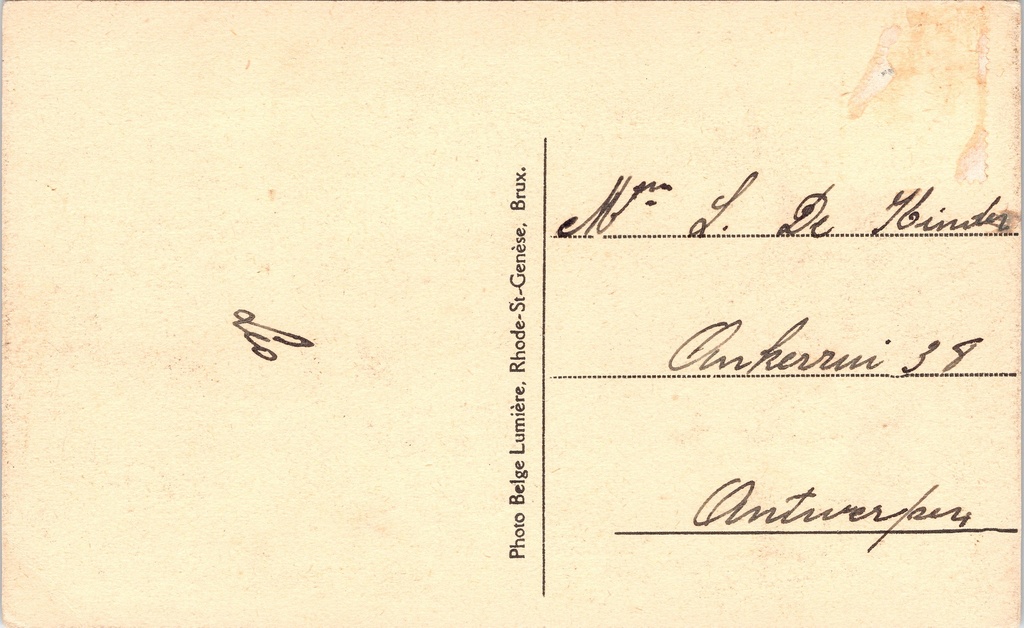 Leo
Photo Belge Lumière, Rhode-St-Genèse, Brux.
Mme L. De Hinder
Ankerrui 38
Antwerpen